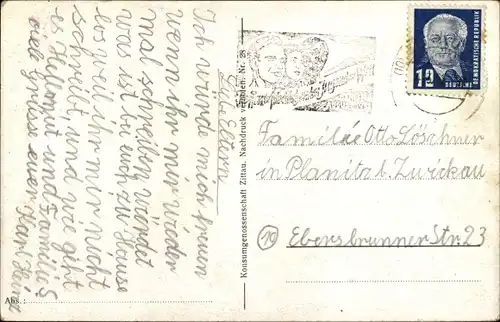 Liebe Eltern
Ich würde mich freuen
wenn ihr mir wieder
mal schreiben würdet
was ist bei euch zu Hause
los weil ihr mir nicht
schreibt, und wie gibt
es Helmut und Familie S
viele Grüsse euer Karl Heinz
Abs.:
Konsumgenossenschaft Zittau. Nachdruck verboten. Nr. 28
DEUTSCHE
DEMOKRATISCHE REPUBLIK
12
Familie Otto Löschner
in Planitz b. Zwickau
10 Ebersbrunner Str. 23